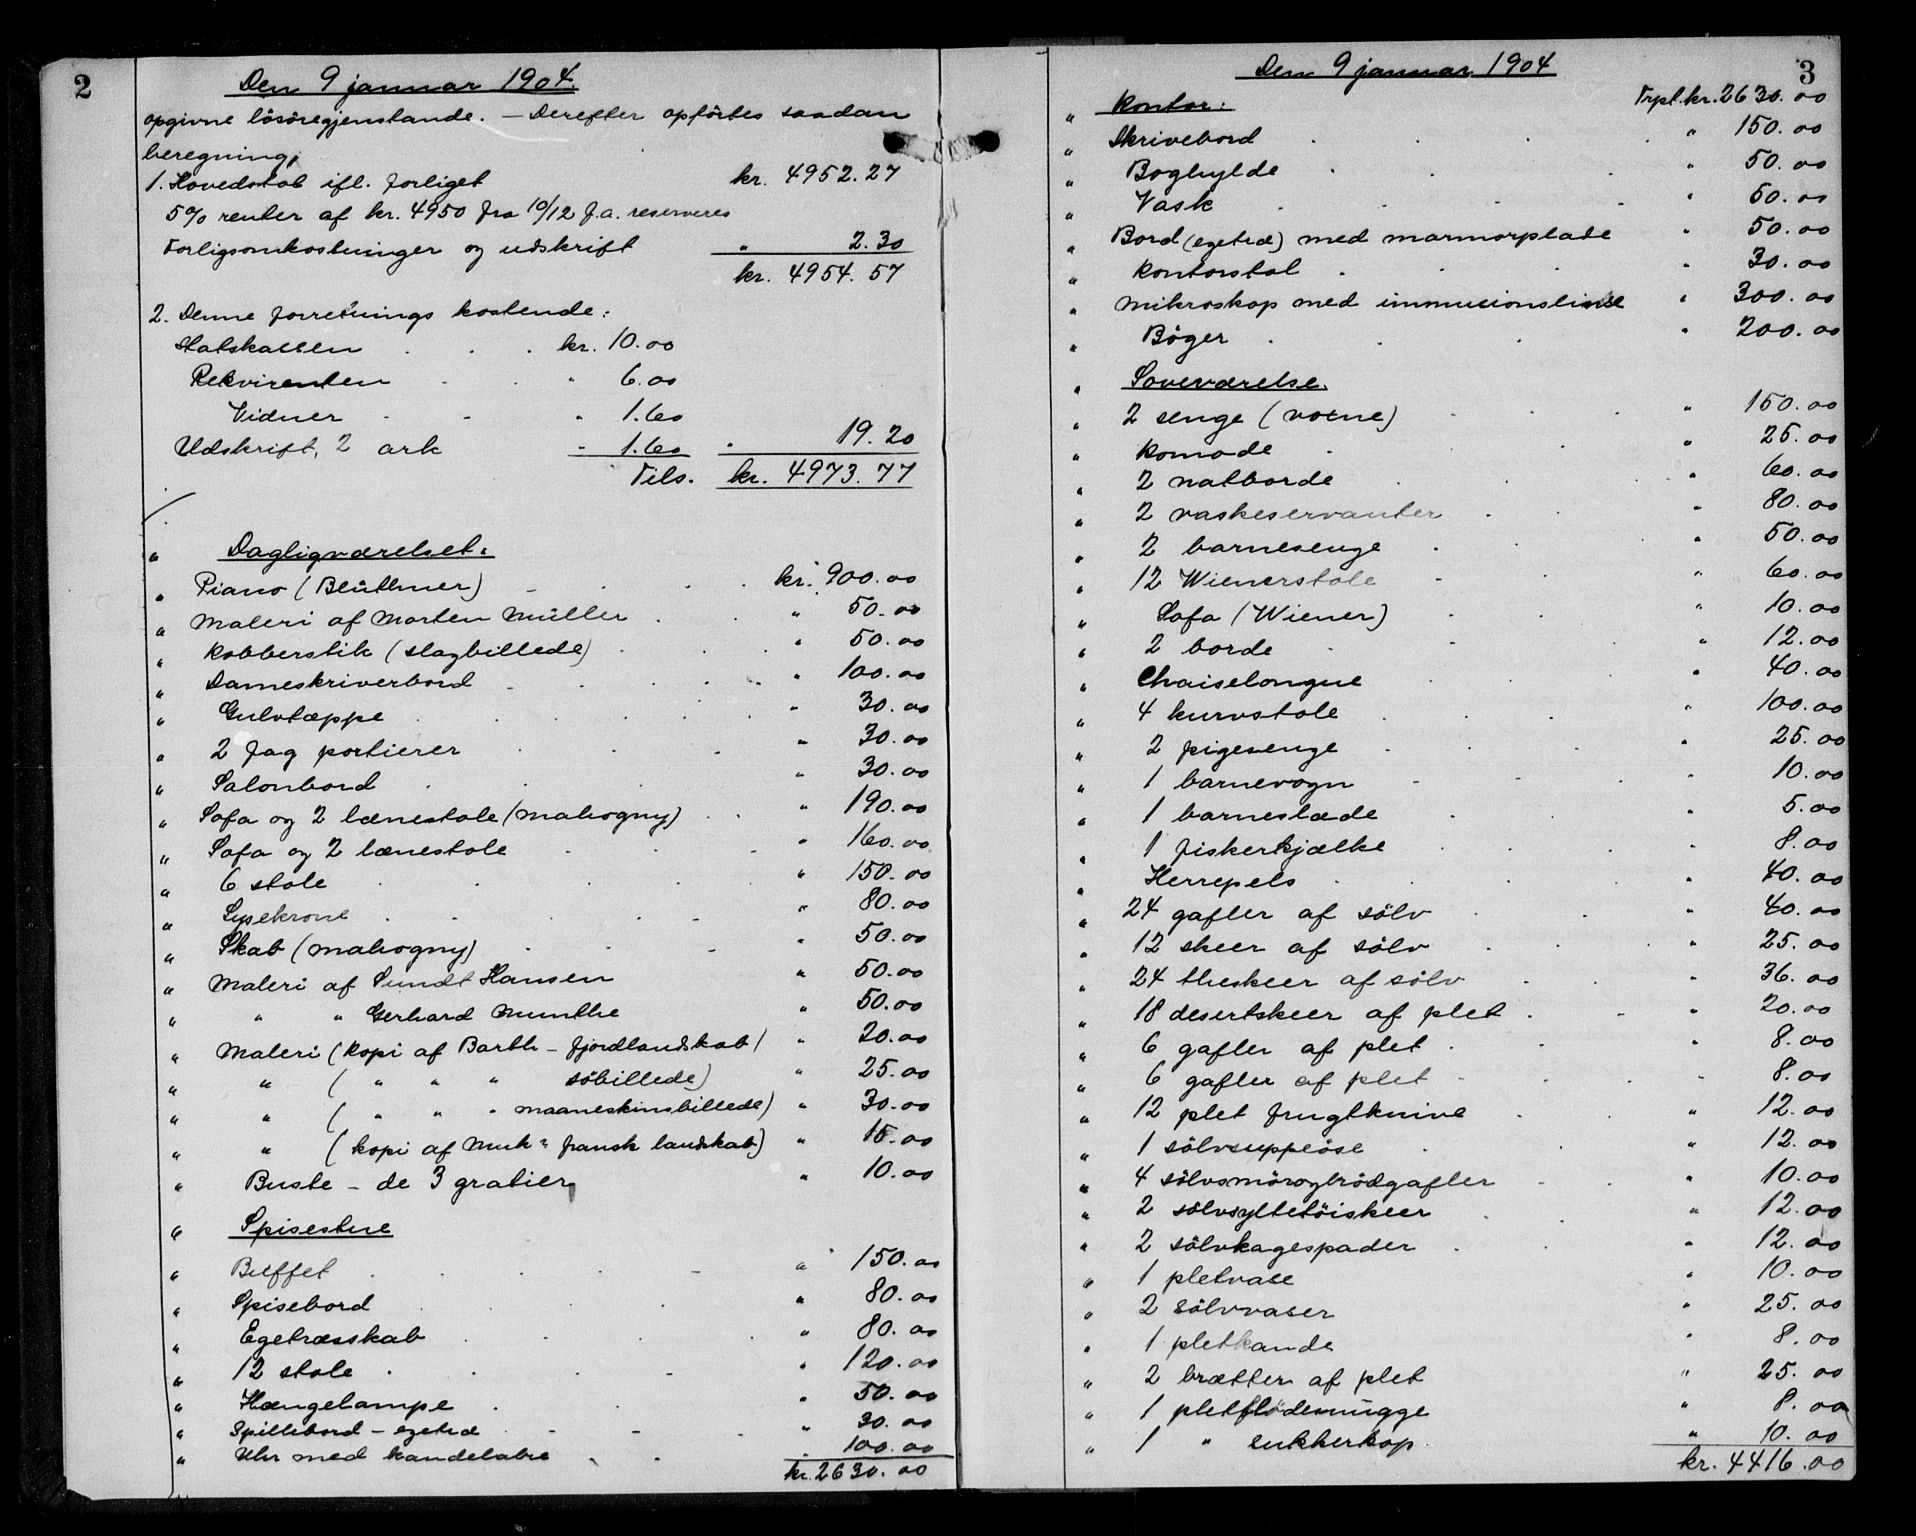 2
Den 9 januar 1904.
opgivne lösöregjenstande. – Derefter opförtes saadan
beregning,
1. Hovedstol ifl. forliget kr. 4952.27
5% renter af kr. 4950 fra 10/12 f.a. reserveres
Forligsomkostninger og udskrift " 2.30
kr. 4954.57
2. Denne forretnings kostende:
Statskassen . . . kr. 10.00
Rekvirenten - . " 6.00
Vidner - - " 1.60
Udskrift, 2 ark - 1.60 " 19.20
Tils. kr. 4973.77
" Dagligværelset:
" Piano (Blüthner) - kr. 900.00
" Maleri af Morten Müller " 50.00
" Kobberstik (slagbillede) " 50.00
" Dameskriverbord " 100.00
" Gulvtæppe " 30.00
" 2 fag portierer " 30.00
" Salonbord " 30.00
" Sofa og 2 lænestole (mahogny) " 190.00
" Sofa og 2 lænestole " 160.00
" 6 stole " 150.00
" Lysekrone " 80.00
" Skab (mahogny) " 50.00
" Maleri af Sundt Hansen " 50.00
" " " Gerhard Munthe " 50.00
" Maleri (kopi af Barth – fjordlandskab) " 20.00
" " ( " " " söbillede) " 25.00
" " ( " " " maaneskinsbillede) " 30.00
" " (kopi af Munk " fransk landskab) " 15.00
" Buste – de 3 gratier " 10.00
" Spisestue
" Buffet " 150.00
" Spisebord " 80.00
" Egetræsskab " 80.00
" 12 stole " 120.00
" Hængelampe " 50.00
" Spillebord – egetræ " 30.00
" Uhr med kandelabre " 100.00
kr. 2630.00
3
Den 9 januar 1904
" Kontor: Trpt. kr. 2630.00
" Skrivebord " 150.00
" Boghylde " 50.00
" Vask " 50.00
" Bord (egetræ) med marmorplate " 50.00
" Kontorstol " 30.00
" Mikroskop med immusionslinse " 300.00
" Böger " 200.00
" Soveværelse.
" 2 senge (votne) " 150.00
" Komode " 25.00
" 2 natborde " 60.00
" 2 vaskeservanter " 80.00
" 2 barnesenge " 50.00
" 12 Wienerstole " 60.00
" Sofa (Wiener) " 10.00
" 2 borde " 12.00
" Chaiselongue " 40.00
" 4 kurvstole " 100.00
" 2 pigesenge " 25.00
" 1 barnevogn " 10.00
" 1 barneslæde " 5.00
" 1 fiskerkjælke " 8.00
" Herrepels " 40.00
" 24 gafler af sölv " 40.00
" 12 skeer af sölv " 25.00
" 24 theskeer af sölv " 36.00
" 18 desertskeer af plet " 20.00
" 6 gafler af plet " 8.00
" 6 gafler af plet " 8.00
" 12 plet frugtknive " 12.00
" 1 sölvsuppeöse " 12.00
" 4 sölvsmörogbrödgafler " 10.00
" 2 sölvsyltetöiskeer " 12.00
" 2 sölvkagespader " 12.00
" 1 pletvase " 10.00
" 2 sölvvaser " 25.00
" 1 pletkande " 8.00
" 2 brætter af plet " 25.00
" 1 pletflödemugge " 8.00
" 1 " sukkerkop " 10.00
kr. 4416.00